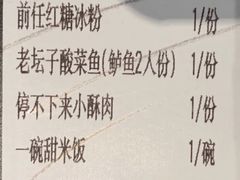 前任红糖冰粉 1/份
老坛子酸菜鱼(鲈鱼2人份) 1/份
停不下来小酥肉 1/份
一碗甜米饭 1/碗